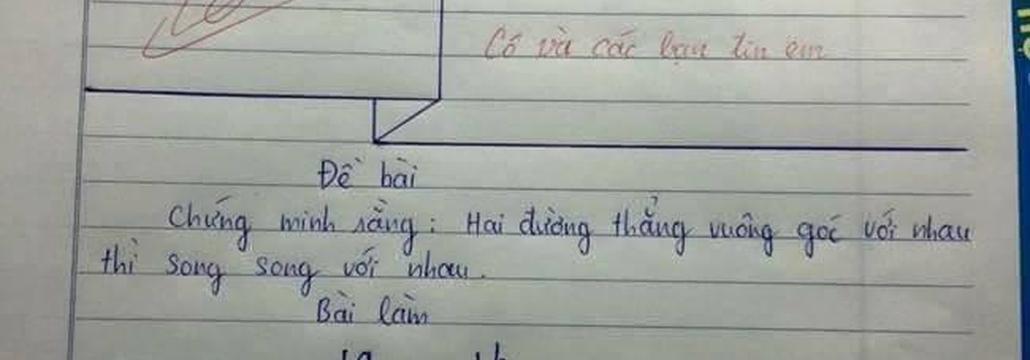 Cô và các bạn tin em
Đề bài
Chứng minh rằng: Hai đường thẳng vuông góc với nhau
thì song song với nhau.
Bài làm